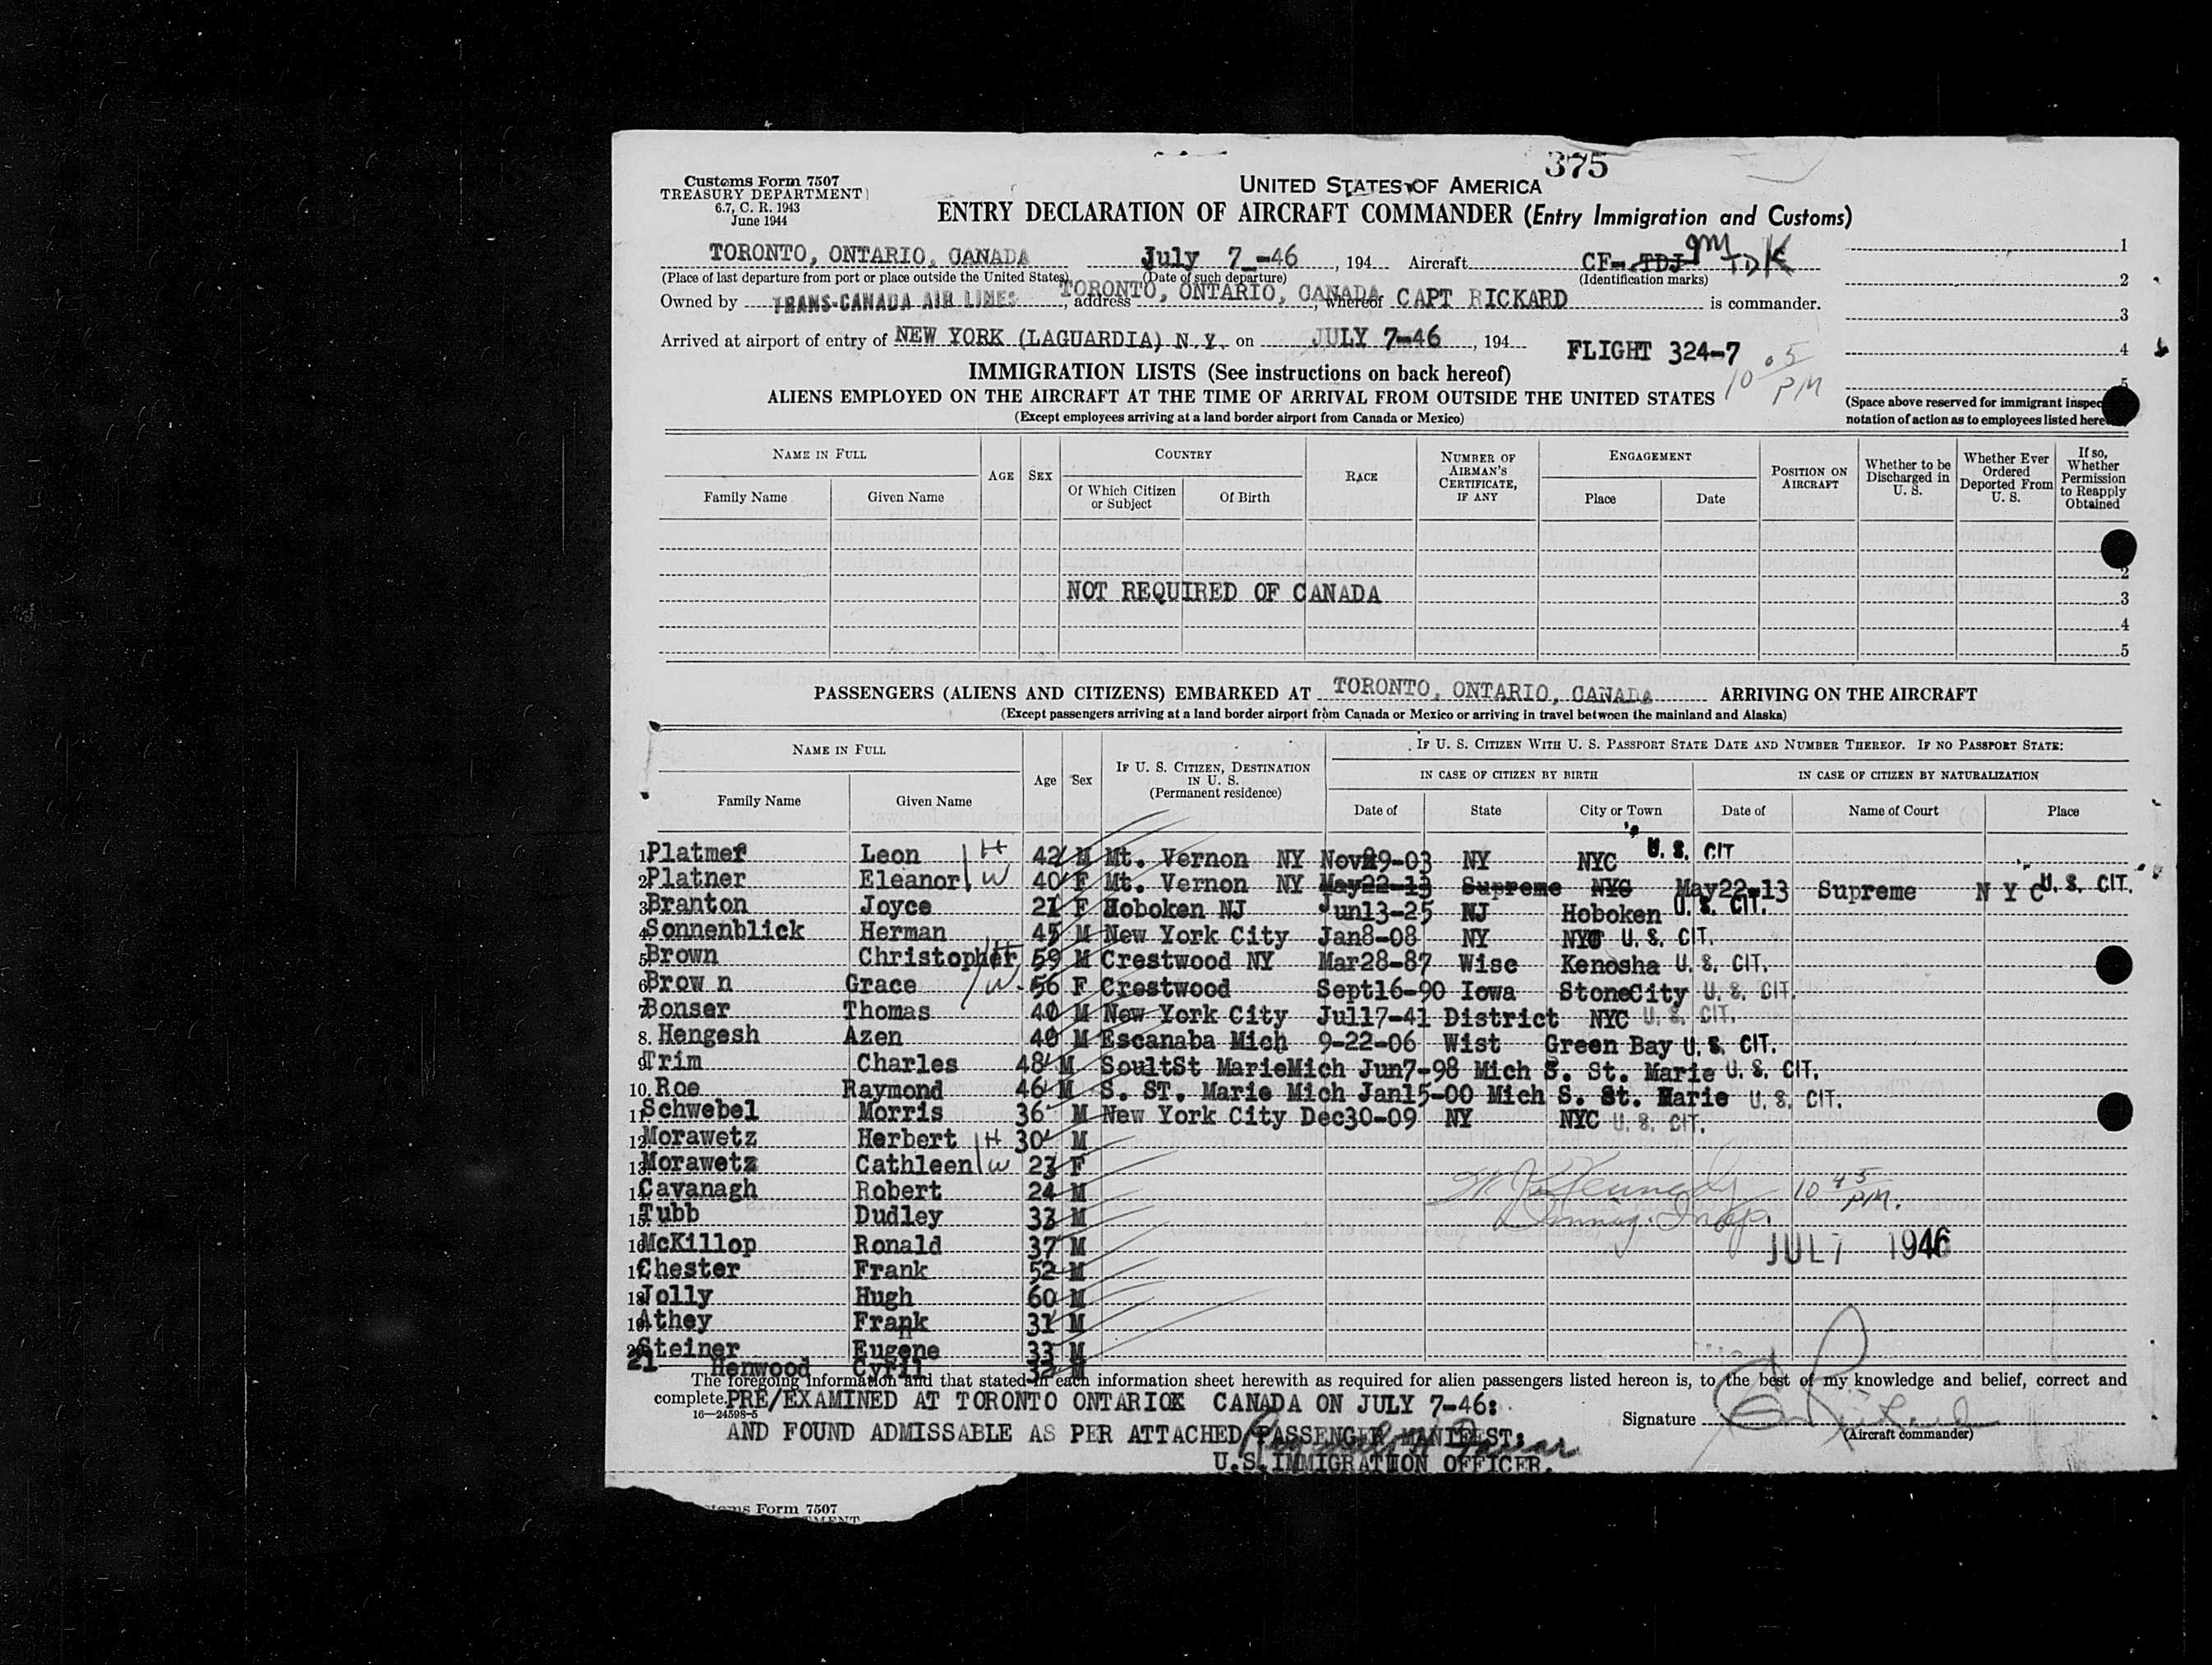 375
Customs Form 7507
TREASURY DEPARTMENT
6.7, C. R. 1943
June 1944
UNITED STATES OF AMERICA
ENTRY DECLARATION OF AIRCRAFT COMMANDER (Entry Immigration and Customs)
TORONTO, ONTARIO, CANADA July 7-46, 194 Aircraft CF- TDJ TDK
(Place of last departure from port or place outside the United States) (Date of such departure) (Identification marks)
Owned by TRANS-CANADA AIR LINES, address TORONTO, ONTARIO, CANADA, whereof CAPT RICKARD is commander.
Arrived at airport of entry of NEW YORK (LAGUARDIA) N.Y. on JULY 7-46, 194 FLIGHT 324-7
10 05 PM
1
2
3
4
5
(Space above reserved for immigrant inspec
notation of action as to employees listed here
IMMIGRATION LISTS (See instructions on back hereof)
ALIENS EMPLOYED ON THE AIRCRAFT AT THE TIME OF ARRIVAL FROM OUTSIDE THE UNITED STATES
(Except employees arriving at a land border airport from Canada or Mexico)
NAME IN FULL AGE SEX COUNTRY RACE NUMBER OF AIRMAN'S CERTIFICATE, IF ANY ENGAGEMENT POSITION ON AIRCRAFT Whether to be Discharged in U. S. Whether Ever Ordered Deported From U. S. If so, Whether Permission to Reapply Obtained
Family Name Given Name Of Which Citizen or Subject Of Birth Place Date
2
NOT REQUIRED OF CANADA 3
4
5
PASSENGERS (ALIENS AND CITIZENS) EMBARKED AT TORONTO, ONTARIO, CANADA ARRIVING ON THE AIRCRAFT
(Except passengers arriving at a land border airport from Canada or Mexico or arriving in travel between the mainland and Alaska)
NAME IN FULL Age Sex IF U. S. CITIZEN, DESTINATION IN U. S. (Permanent residence) IF U. S. CITIZEN WITH U. S. PASSPORT STATE DATE AND NUMBER THEREOF. IF NO PASSPORT STATE:
IN CASE OF CITIZEN BY BIRTH IN CASE OF CITIZEN BY NATURALIZATION
Family Name Given Name Date of State City or Town Date of Name of Court Place
1 Platmer Leon H 42 M Mt. Vernon NY Nov29-03 NY NYC U. S. CIT
2 Platner Eleanor W 40 F Mt. Vernon NY May22-13 Supreme NYC May22-13 Supreme N Y C U. S. CIT.
3 Branton Joyce 21 F Hoboken NJ Jun13-25 NJ Hoboken U. S. CIT.
4 Sonnenblick Herman 45 M New York City Jan8-08 NY NYC U. S. CIT.
5 Brown Christopher H 59 M Crestwood NY Mar28-87 Wisc Kenosha U. S. CIT.
6 Brow n Grace W 56 F Crestwood Sept16-90 Iowa StoneCity U. S. CIT.
7 Bonser Thomas 40 M New York City Jul17-41 District NYC U. S. CIT.
8. Hengesh Azen 40 M Escanaba Mich 9-22-06 Wist Green Bay U. S. CIT.
9 Trim Charles 48 M SoultSt MarieMich Jun7-98 Mich S. St. Marie U. S. CIT.
10. Roe Raymond 46 M S. ST. Marie Mich Jan15-00 Mich S. St. Marie U. S. CIT.
11. Schwebel Morris 36 M New York City Dec30-09 NY NYC U. S. CIT.
12 Morawetz Herbert H 30 M
13. Morawetz Cathleen W 23 F
1 Cavanagh Robert 24 M
15 Tubb Dudley 33 M
16 McKillop Ronald 37 M
1 Chester Frank 52 M
18 Jolly Hugh 60 M
19 Athey Frank 31 M
2 Steiner Eugene 33 M
21 Henwood Cyril 32 M
Kennedy 10 45 PM.
Immig. Insp.
JUL 7 1946
The foregoing information and that stated in each information sheet herewith as required for alien passengers listed hereon is, to the best of my knowledge and belief, correct and
complete. PRE/EXAMINED AT TORONTO ONTARIO CANADA ON JULY 7-46:
16—24598-5
AND FOUND ADMISSABLE AS PER ATTACHED PASSENGER MANIFEST:
Signature
(Aircraft commander)
U.S. IMMIGRATION OFFICER.
Form 7507